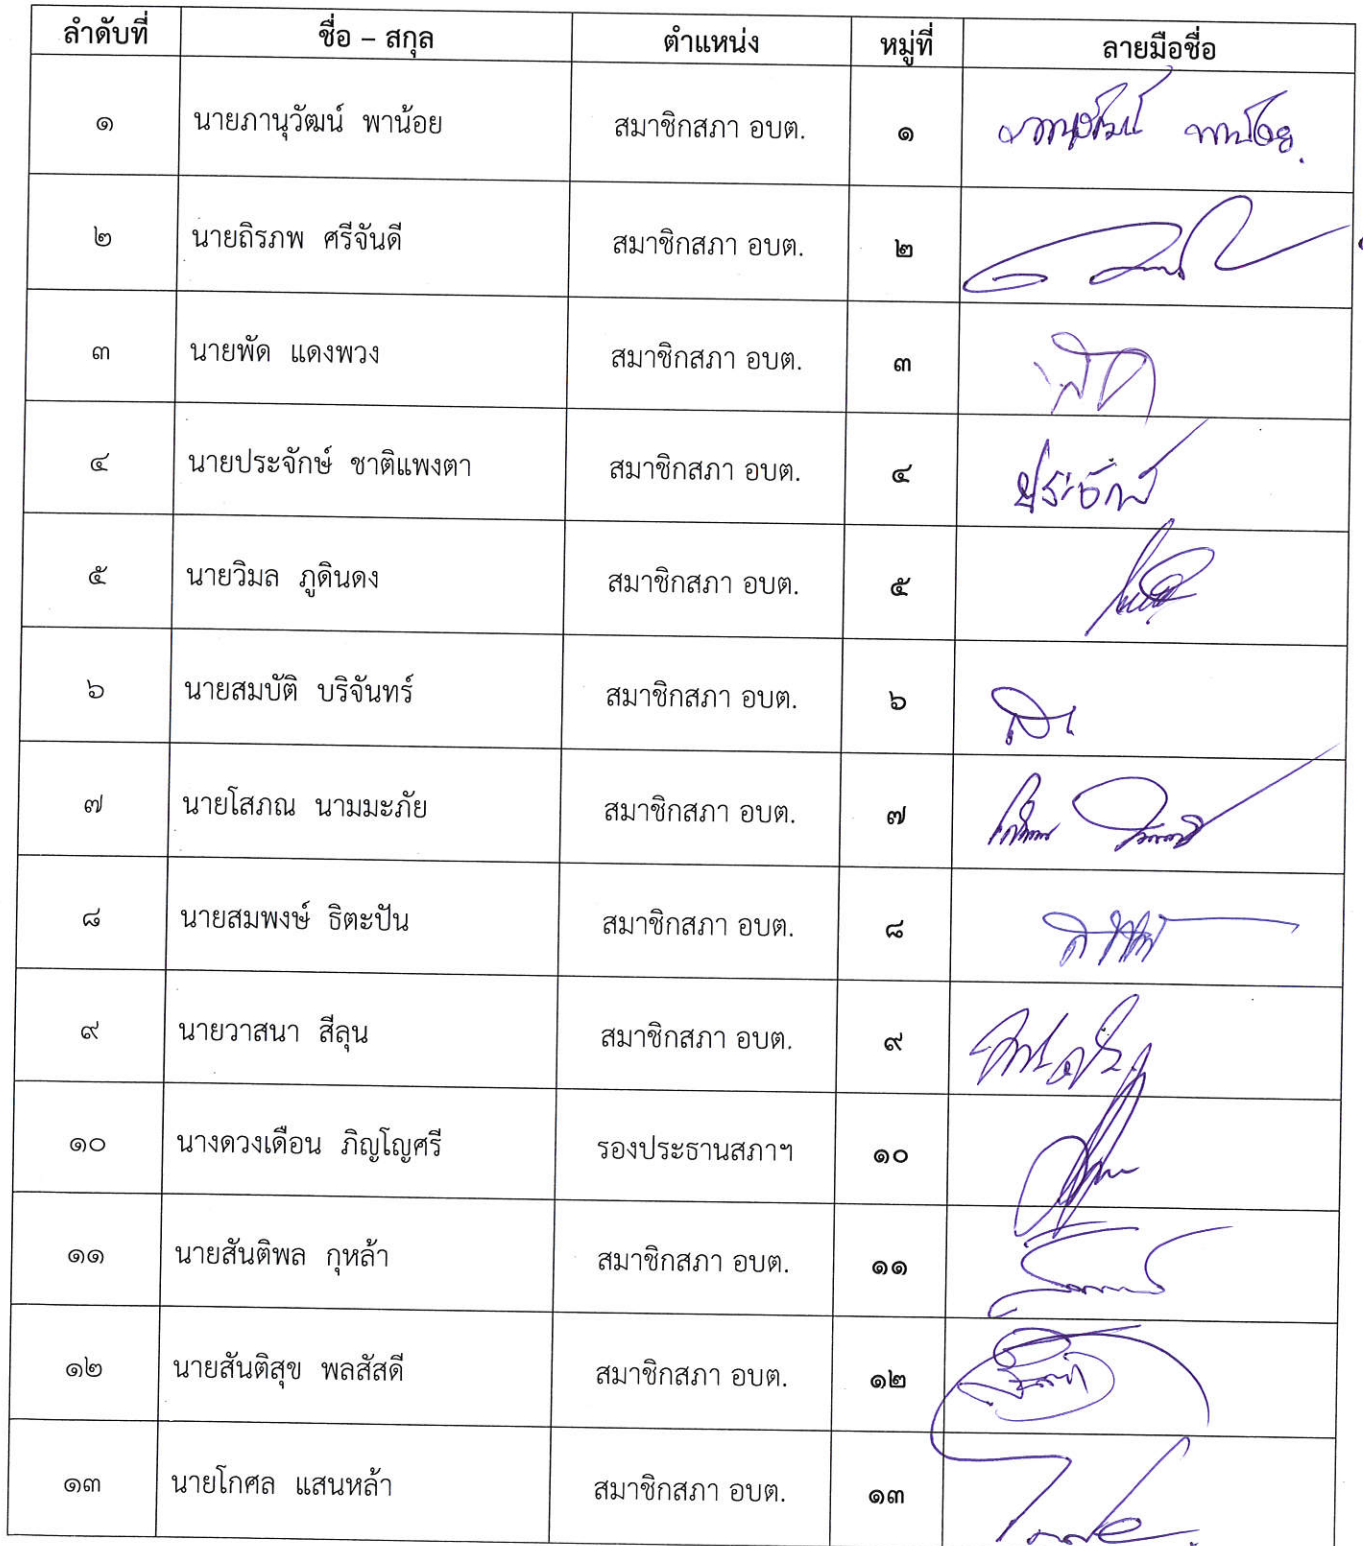 ลำดับที่ ชื่อ – สกุล ตำแหน่ง หมู่ที่ ลายมือชื่อ
๑ นายภานุวัฒน์ พาน้อย สมาชิกสภา อบต. ๑ ภานุวัฒน์ พาน้อย
๒ นายถิรภพ ศรีจันดี สมาชิกสภา อบต. ๒
๓ นายพัด แดงพวง สมาชิกสภา อบต. ๓
๔ นายประจักษ์ ชาติแพงตา สมาชิกสภา อบต. ๔ ประจักษ์
๕ นายวิมล ภูดินดง สมาชิกสภา อบต. ๕
๖ นายสมบัติ บริจันทร์ สมาชิกสภา อบต. ๖
๗ นายโสภณ นามมะภัย สมาชิกสภา อบต. ๗
๘ นายสมพงษ์ ธิตะปัน สมาชิกสภา อบต. ๘
๙ นายวาสนา สีลุน สมาชิกสภา อบต. ๙
๑๐ นางดวงเดือน ภิญโญศรี รองประธานสภาฯ ๑๐
๑๑ นายสันติพล กุหล้า สมาชิกสภา อบต. ๑๑
๑๒ นายสันติสุข พลสัสดี สมาชิกสภา อบต. ๑๒
๑๓ นายโกศล แสนหล้า สมาชิกสภา อบต. ๑๓